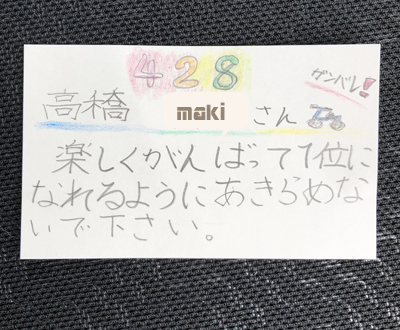 428
ガンバレ!
高橋 maki さん
楽しくがんばって1位に
なれるようにあきらめな
いで下さい。